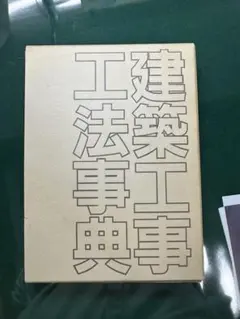 建築工事
工法事典